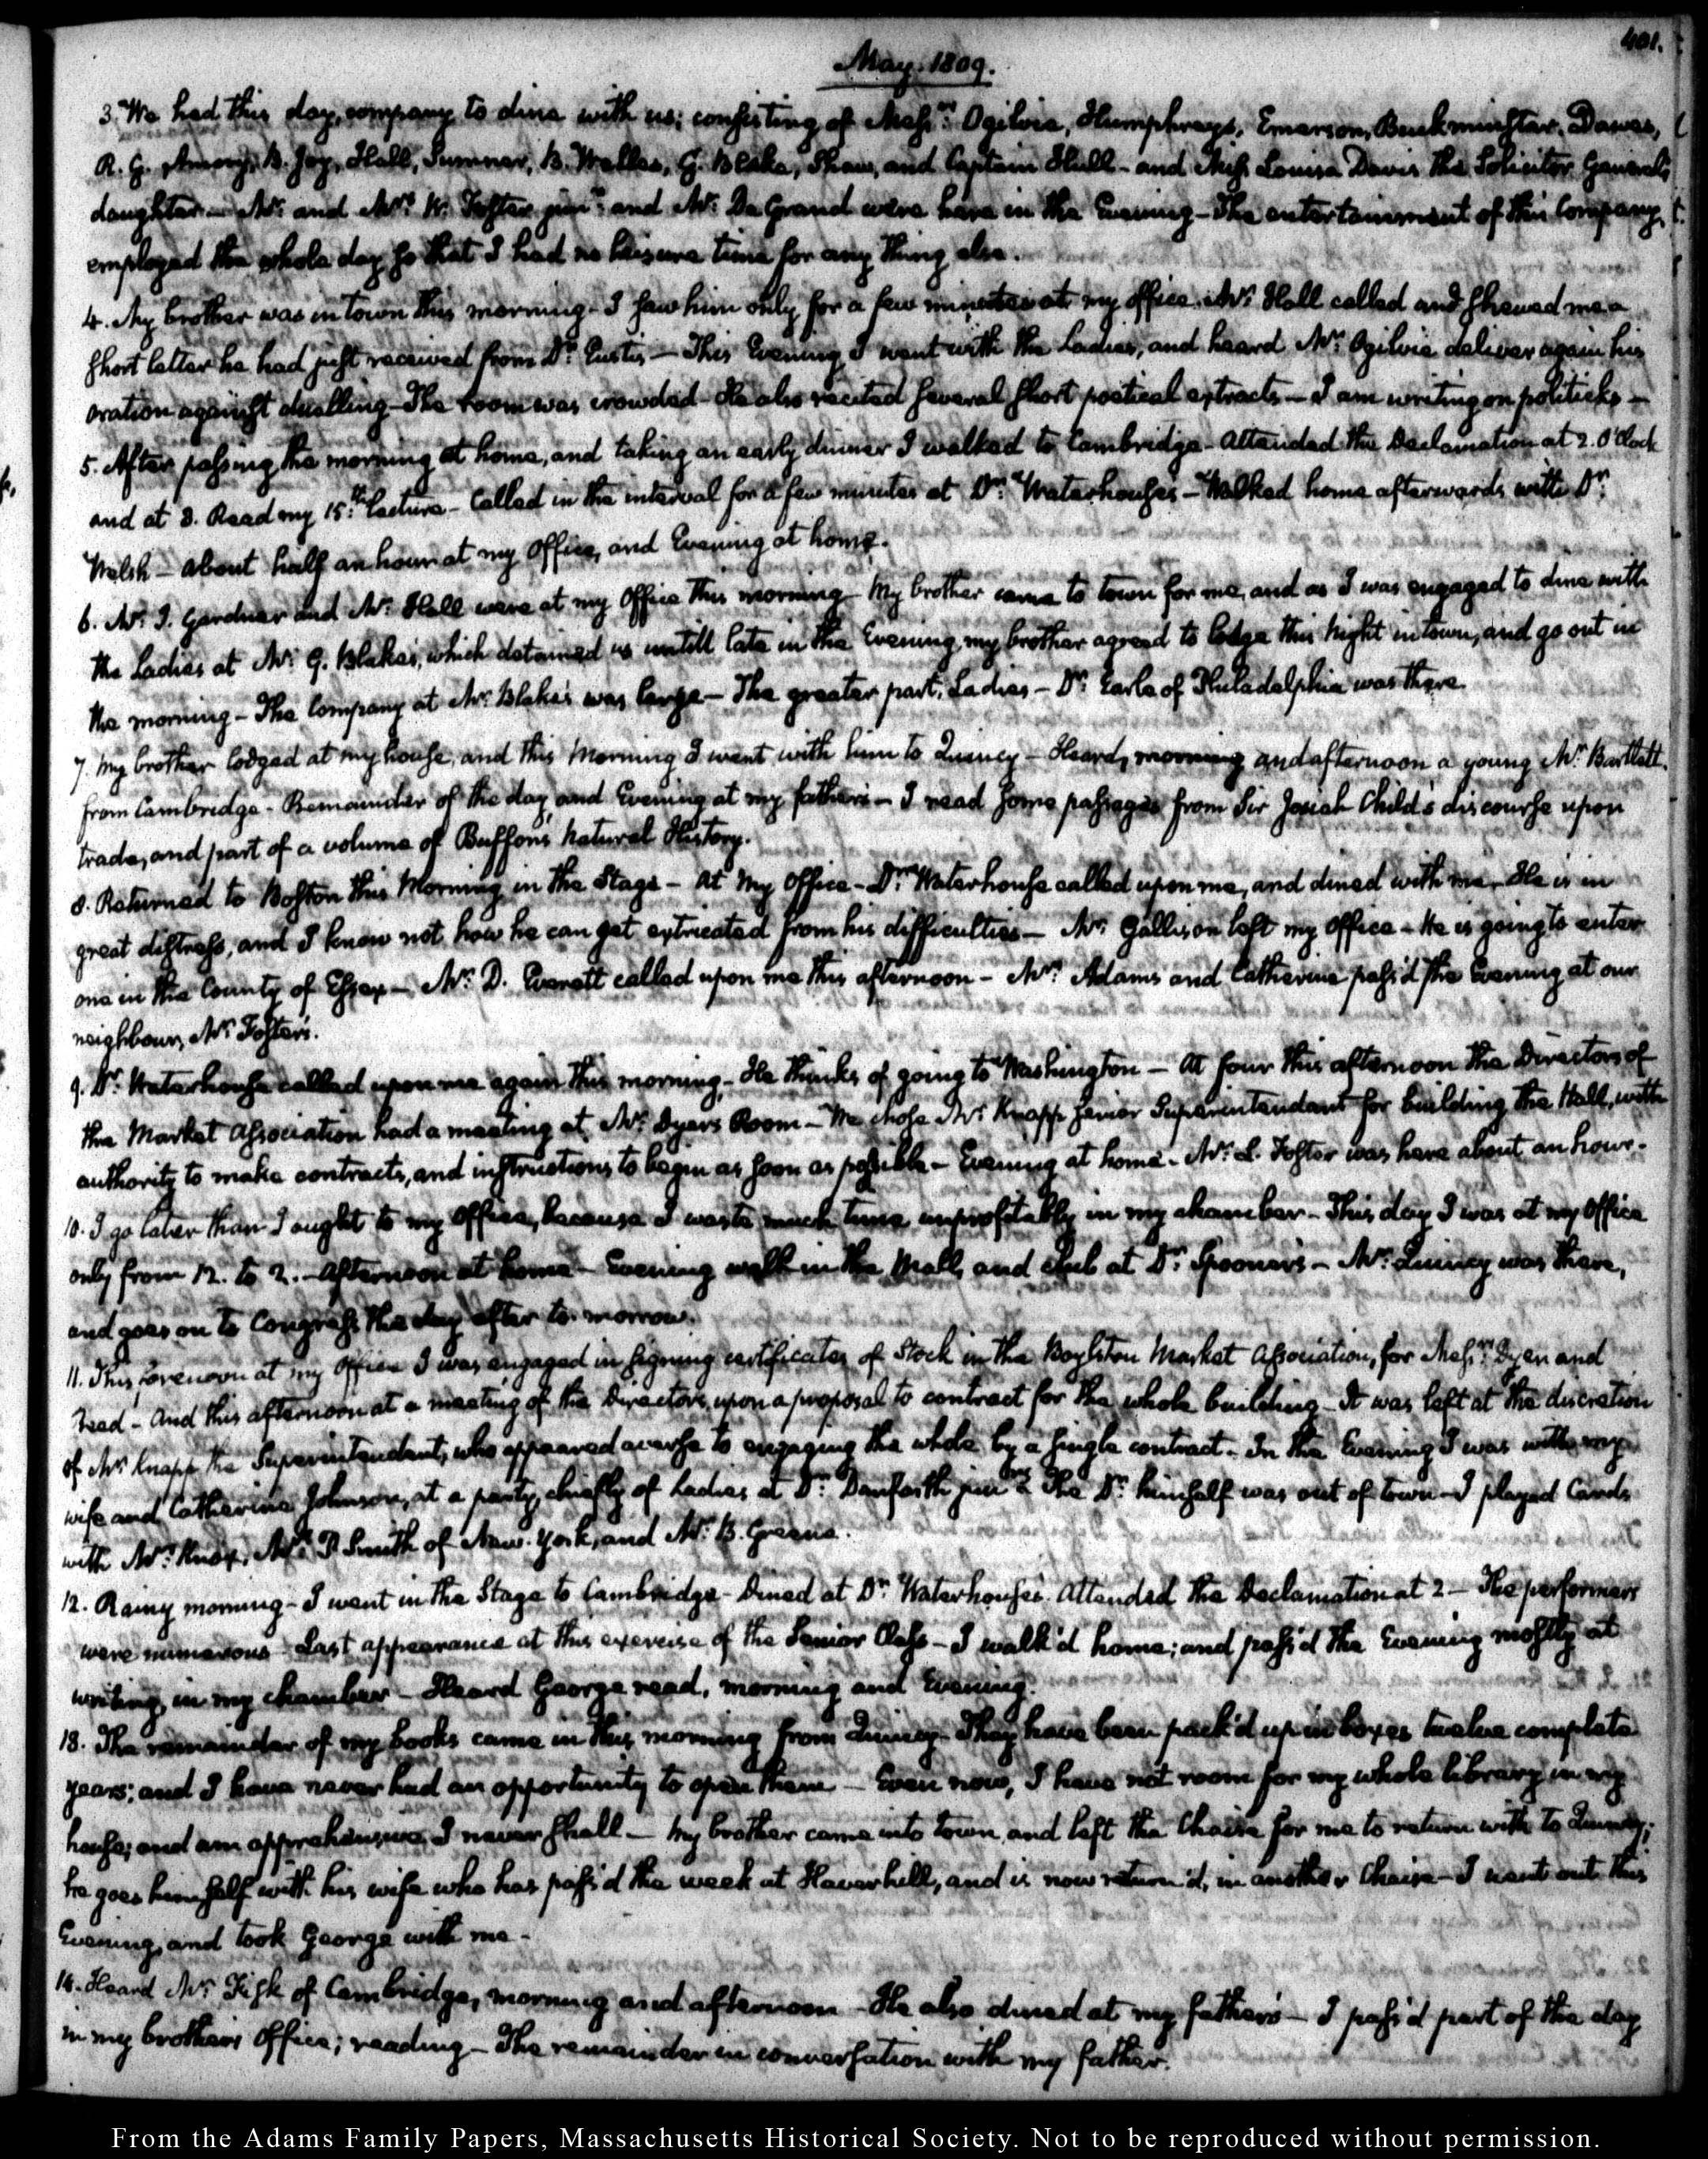 401.
May. 1809.
3. We had this day, company to dine with us; consisting of Messrs: Ogilvie, Humphreys, Emerson, Buckminster, Dawes,
R. G. Amory, B. Joy, Hall, Sumner, B. Welles, G. Blake, Shaw, and Captain Hull - and Miss Louisa Davis the Solicitor General's
daughter - Mr: and Mrs: W. Foster junr: and Mr: De Grand were here in the Evening - The entertainment of this Company,
employed the whole day so that I had no leisure time for any thing else.
4. My brother was in town this morning - I saw him only for a few minutes at my office. Mr: Hall called and shewed me a
short letter he had just received from Dr: Eustis - This Evening I went with the Ladies, and heard Mr: Ogilvie deliver again his
oration against duelling - The room was crowded - He also recited several short poetical extracts - I am writing on politicks -
5. After passing the morning at home, and taking an early dinner I walked to Cambridge - Attended the Declamation at 2. O'Clock
and at 3. Read my 15th: Lecture - Called in the interval for a few minutes at Dr: Waterhouse's - Walked home afterwards with Dr:
Welsh - about half an hour at my Office, and Evening at home.
6. Mr: I. Gardner and Mr: Hall were at my Office this morning - My brother came to town for me, and as I was engaged to dine with
the Ladies at Mr: G. Blake's, which detained us untill late in the Evening, my brother agreed to lodge this Night in town, and go out in
the morning - The Company at Mr: Blake's was large - The greater part, Ladies - Dr: Earle of Philadelphia was there.
7. My brother lodged at my house, and this Morning I went with him to Quincy - Heard, morning and afternoon a young Mr: Bartlett,
from Cambridge - Remainder of the day, and Evening at my father's - I read some passages from Sir Josiah Child's discourse upon
trade, and part of a volume of Buffon's Natural History.
8. Returned to Boston this Morning, in the Stage - At my Office - Dr: Waterhouse called upon me, and dined with me. He is in
great distress, and I know not how he can get extricated from his difficulties - Mr: Gallison left my Office - He is going to enter
one in the County of Essex - Mr: D. Everett called upon me this afternoon - Mrs: Adams and Catherine pass'd the Evening at our
neighbour, Mr: Foster's.
9. Dr: Waterhouse called upon me again this morning - He thinks of going to Washington - At four this afternoon the Directors of
the Market Association had a meeting at Mr: Dyer's Room - We chose Mr: Knapp senior Superintendant for building the Hall, with
authority to make contracts, and instructions to begin as soon as possible - Evening at home - Mr: L. Foster was here about an hour -
10. I go later than I ought to my Office, because I waste much time unprofitably in my chamber - This day I was at my Office
only from 12. to 2. - Afternoon at home - Evening walk in the Mall, and Club at Dr: Spooner's - Mr: Quincy was there,
and goes on to Congress the day after to-morrow.
11. This forenoon at my Office I was engaged in signing certificates of Stock in the Boylston Market Association, for Messrs: Dyer and
Head - And this afternoon at a meeting of the Directors, upon a proposal to contract for the whole building - It was left at the discretion
of Mr: Knapp the Superintendant, who appeared averse to engaging the whole by a single contract - In the Evening I was with my
wife and Catherine Johnson, at a party, chiefly of Ladies at Dr: Danforth junr's The Dr: himself was out of town - I played Cards
with Mrs: Knox, Mrs: P. Smith of New-York, and Mr: B. Greene.
12. Rainy morning - I went in the Stage to Cambridge - Dined at Dr: Waterhouse's. Attended the Declamation at 2 - The performers
were numerous - Last appearance at this exercise of the Senior Class - I walk'd home; and pass'd the Evening mostly at
writing, in my chamber - Heard George read, morning and Evening.
13. The remainder of my books came in this morning from Quincy - They have been pack'd up in boxes twelve complete
years; and I have never had an opportunity to open them - Even now, I have not room for my whole library in my
house; and am apprehensive I never shall - My brother came into town, and left the Chaise for me to return with to Quincy;
he goes himself with his wife who has pass'd the week at Haverhill, and is now return'd, in another Chaise - I went out this
Evening, and took George with me -
14. Heard Mr: Fisk of Cambridge, morning and afternoon - He also dined at my father's - I pass'd part of the day
in my brother's Office; reading - The remainder in conversation with my father.
From the Adams Family Papers, Massachusetts Historical Society. Not to be reproduced without permission.